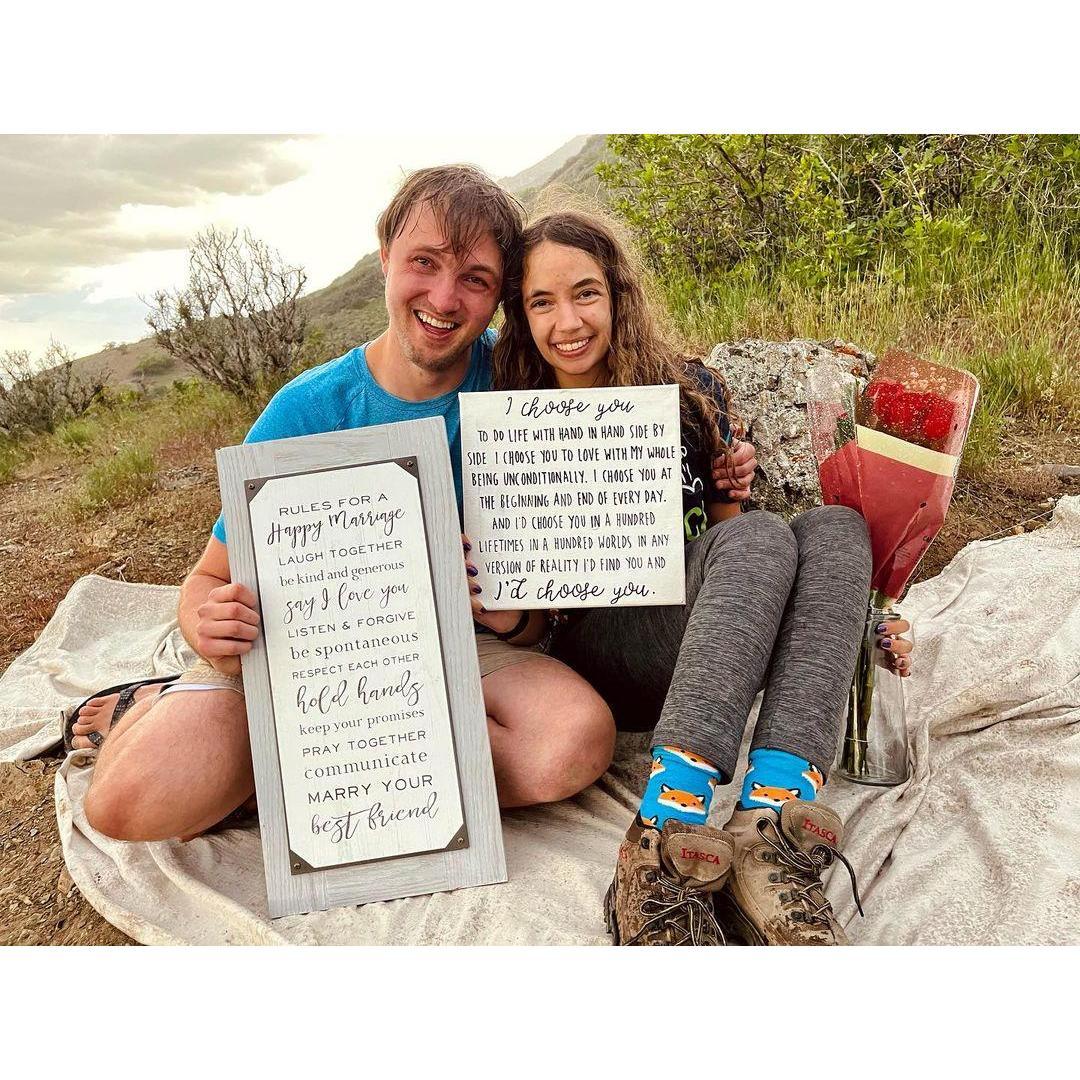 RULES FOR A
Happy Marriage
LAUGH TOGETHER
be kind and generous
say I love you
LISTEN & FORGIVE
be spontaneous
RESPECT EACH OTHER
hold hands
keep your promises
PRAY TOGETHER
communicate
MARRY YOUR
best friend
I choose you
TO DO LIFE WITH HAND IN HAND SIDE BY
SIDE I CHOOSE YOU TO LOVE WITH MY WHOLE
BEING UNCONDITIONALLY. I CHOOSE YOU AT
THE BEGINNING AND END OF EVERY DAY.
AND I'D CHOOSE YOU IN A HUNDRED
LIFETIMES IN A HUNDRED WORLDS IN ANY
VERSION OF REALITY I'D FIND YOU AND
I'd choose you.
ITASCA
ITASCA